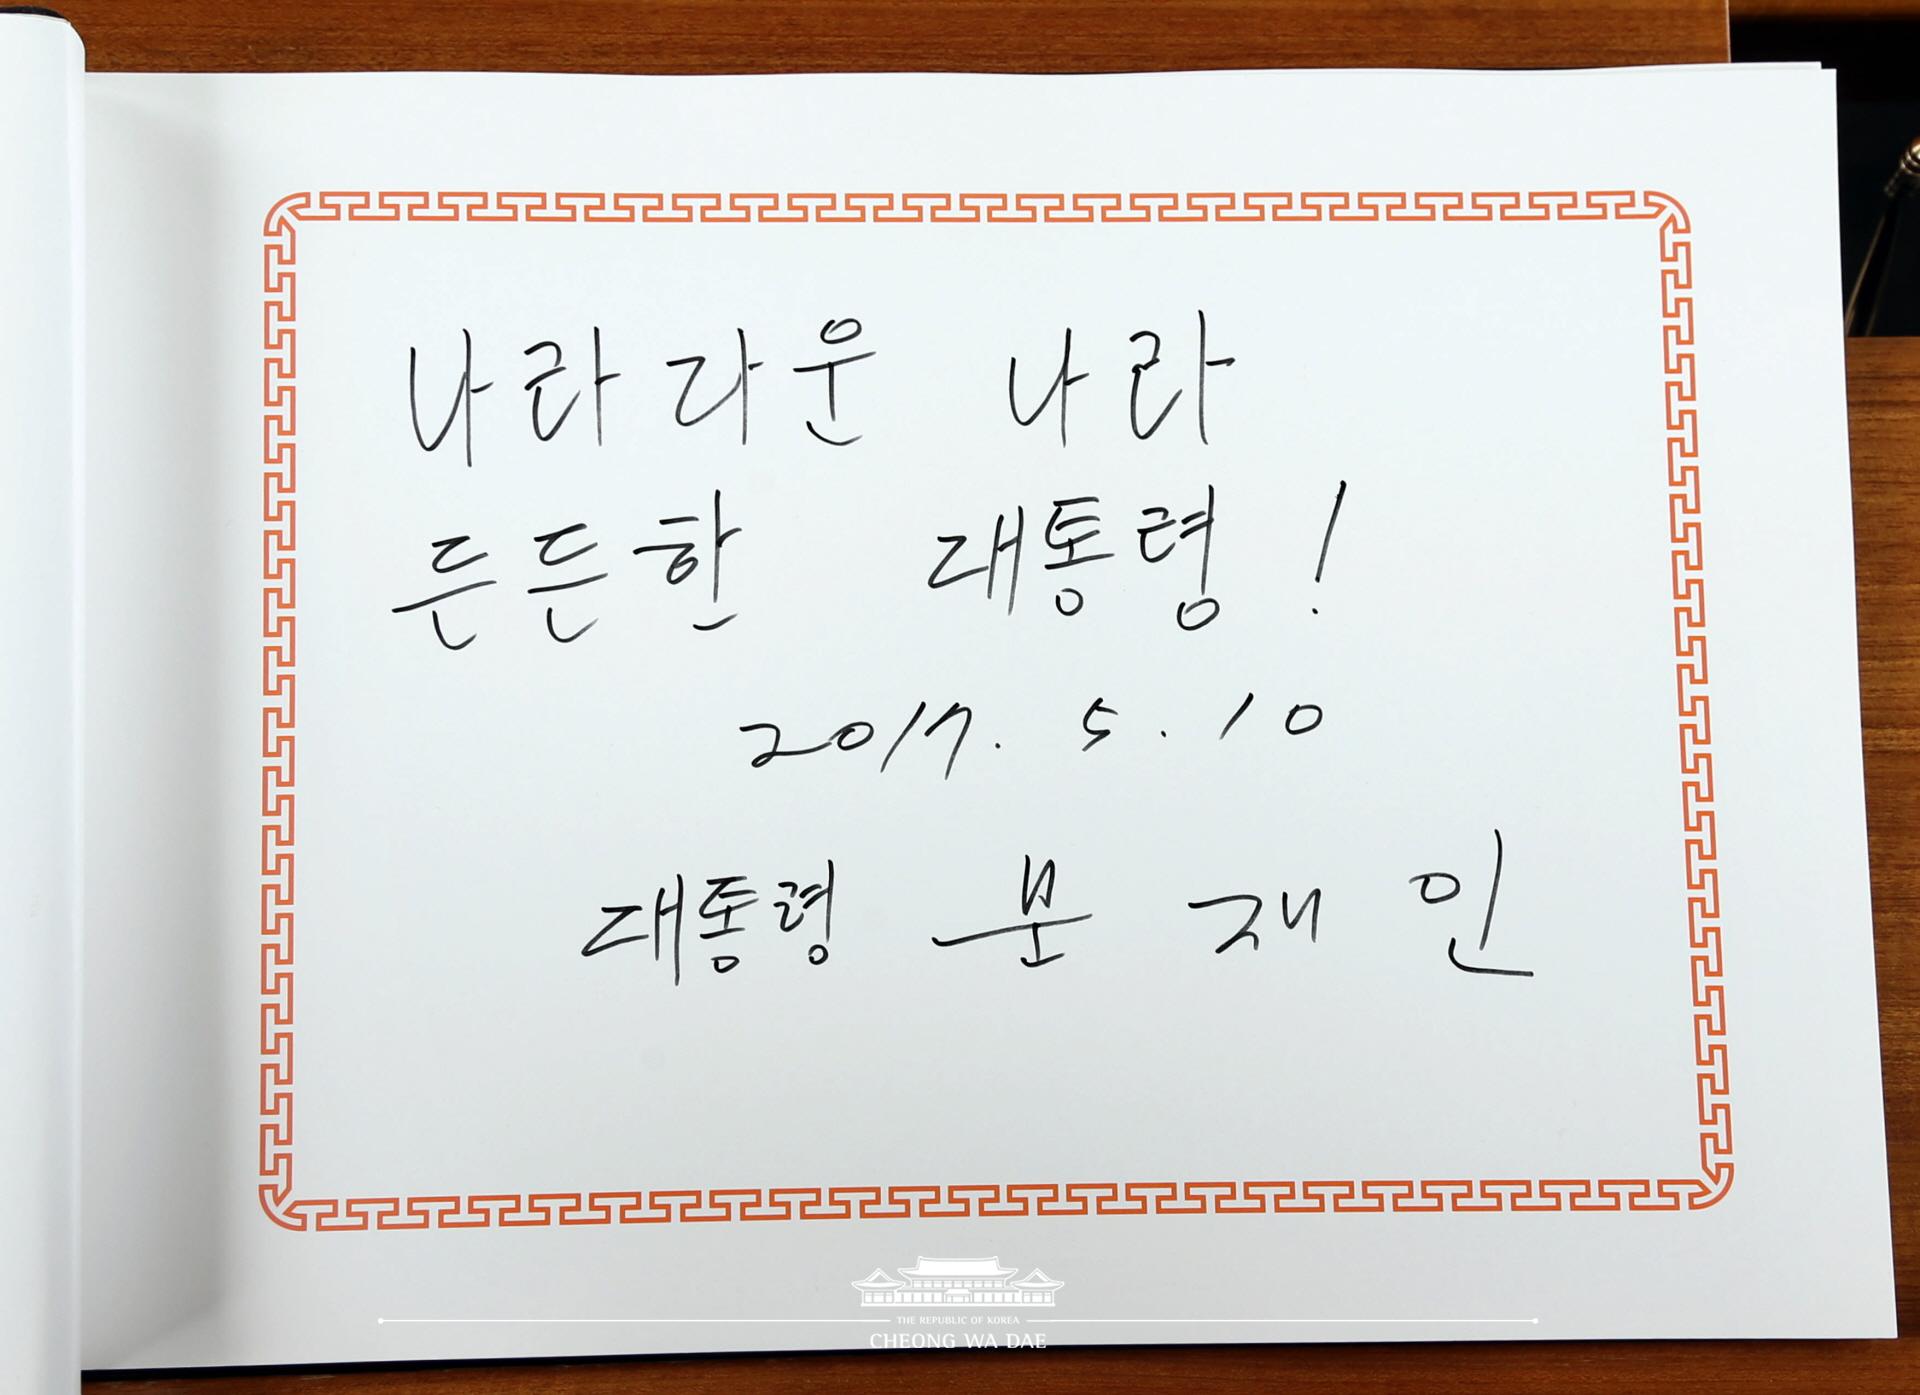 나라다운 나라
든든한 대통령!
2017. 5. 10
대통령 문 재 인
THE REPUBLIC OF KOREA
CHEONG WA DAE